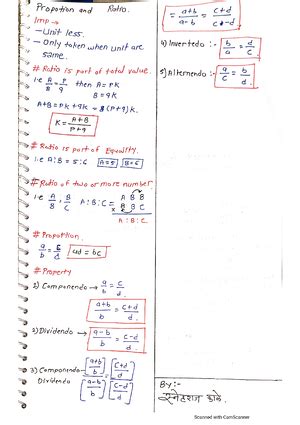 Propotion and Ratio.
Imp →
- Unit less.
- Only taken when unit are
same.
# Ratio is part of total value.
i.e A/B = P/q then A = PK
B = qK
A+B = PK + qK = (P+q) K.
K = A+B / P+q
# Ratio is part of Equality.
i.e A:B = 5:6 A=5 B=6
# Ratio of two or more number
i.e A/B , B/C A:B:C = A B B
× B B C
A:B:C
# Propottion
a/b = c/d ad = bc
# Property
1) Componendo → a/b = c/d
a+b / b = c+d / d
2) Dividendo → a-b / b = c-d / d.
3) Componendo [a+b / b] [c+d / d]
Dividendo [a-b / b] = [c-d / d]
= a+b / a-b = c+d / c-d
4) Invertedo :- b/a = d/c
5) Alternendo :- a/c = b/d.
By :-
Scanned with CamScanner